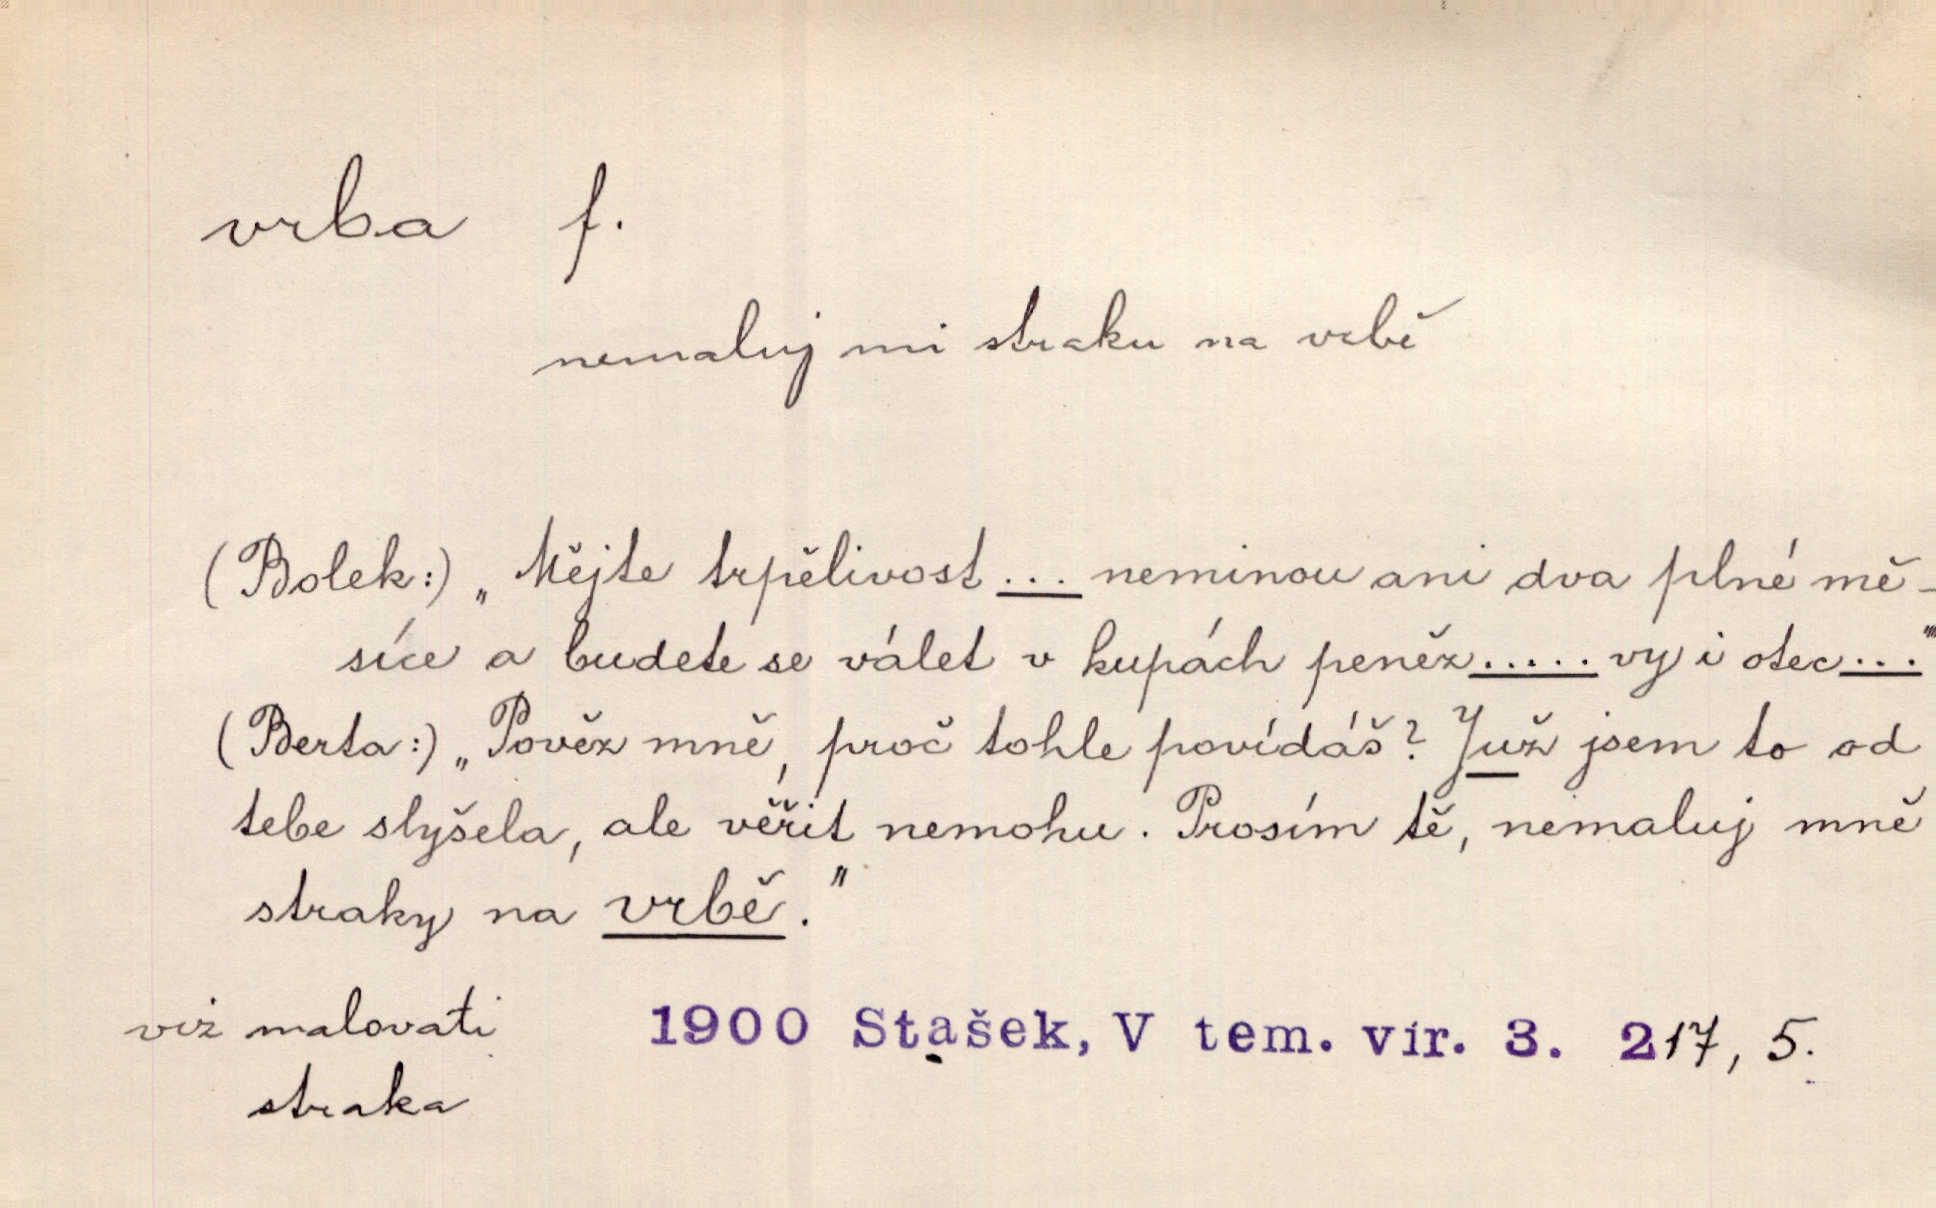 vrba f.
nemaluj mi straku na vrbě
(Bolek:) „Mějte trpělivost ... neminou ani dva plné mě-
síce a budete se válet v kupách peněz ..... vy i otec ..."
(Berta:) „Pověz mně, proč tohle povídáš? Juž jsem to od
tebe slyšela, ale věřit nemohu. Prosím tě, nemaluj mně
straky na vrbě."
viz malovati 1900 Stašek, V tem. vír. 3. 217, 5.
straka